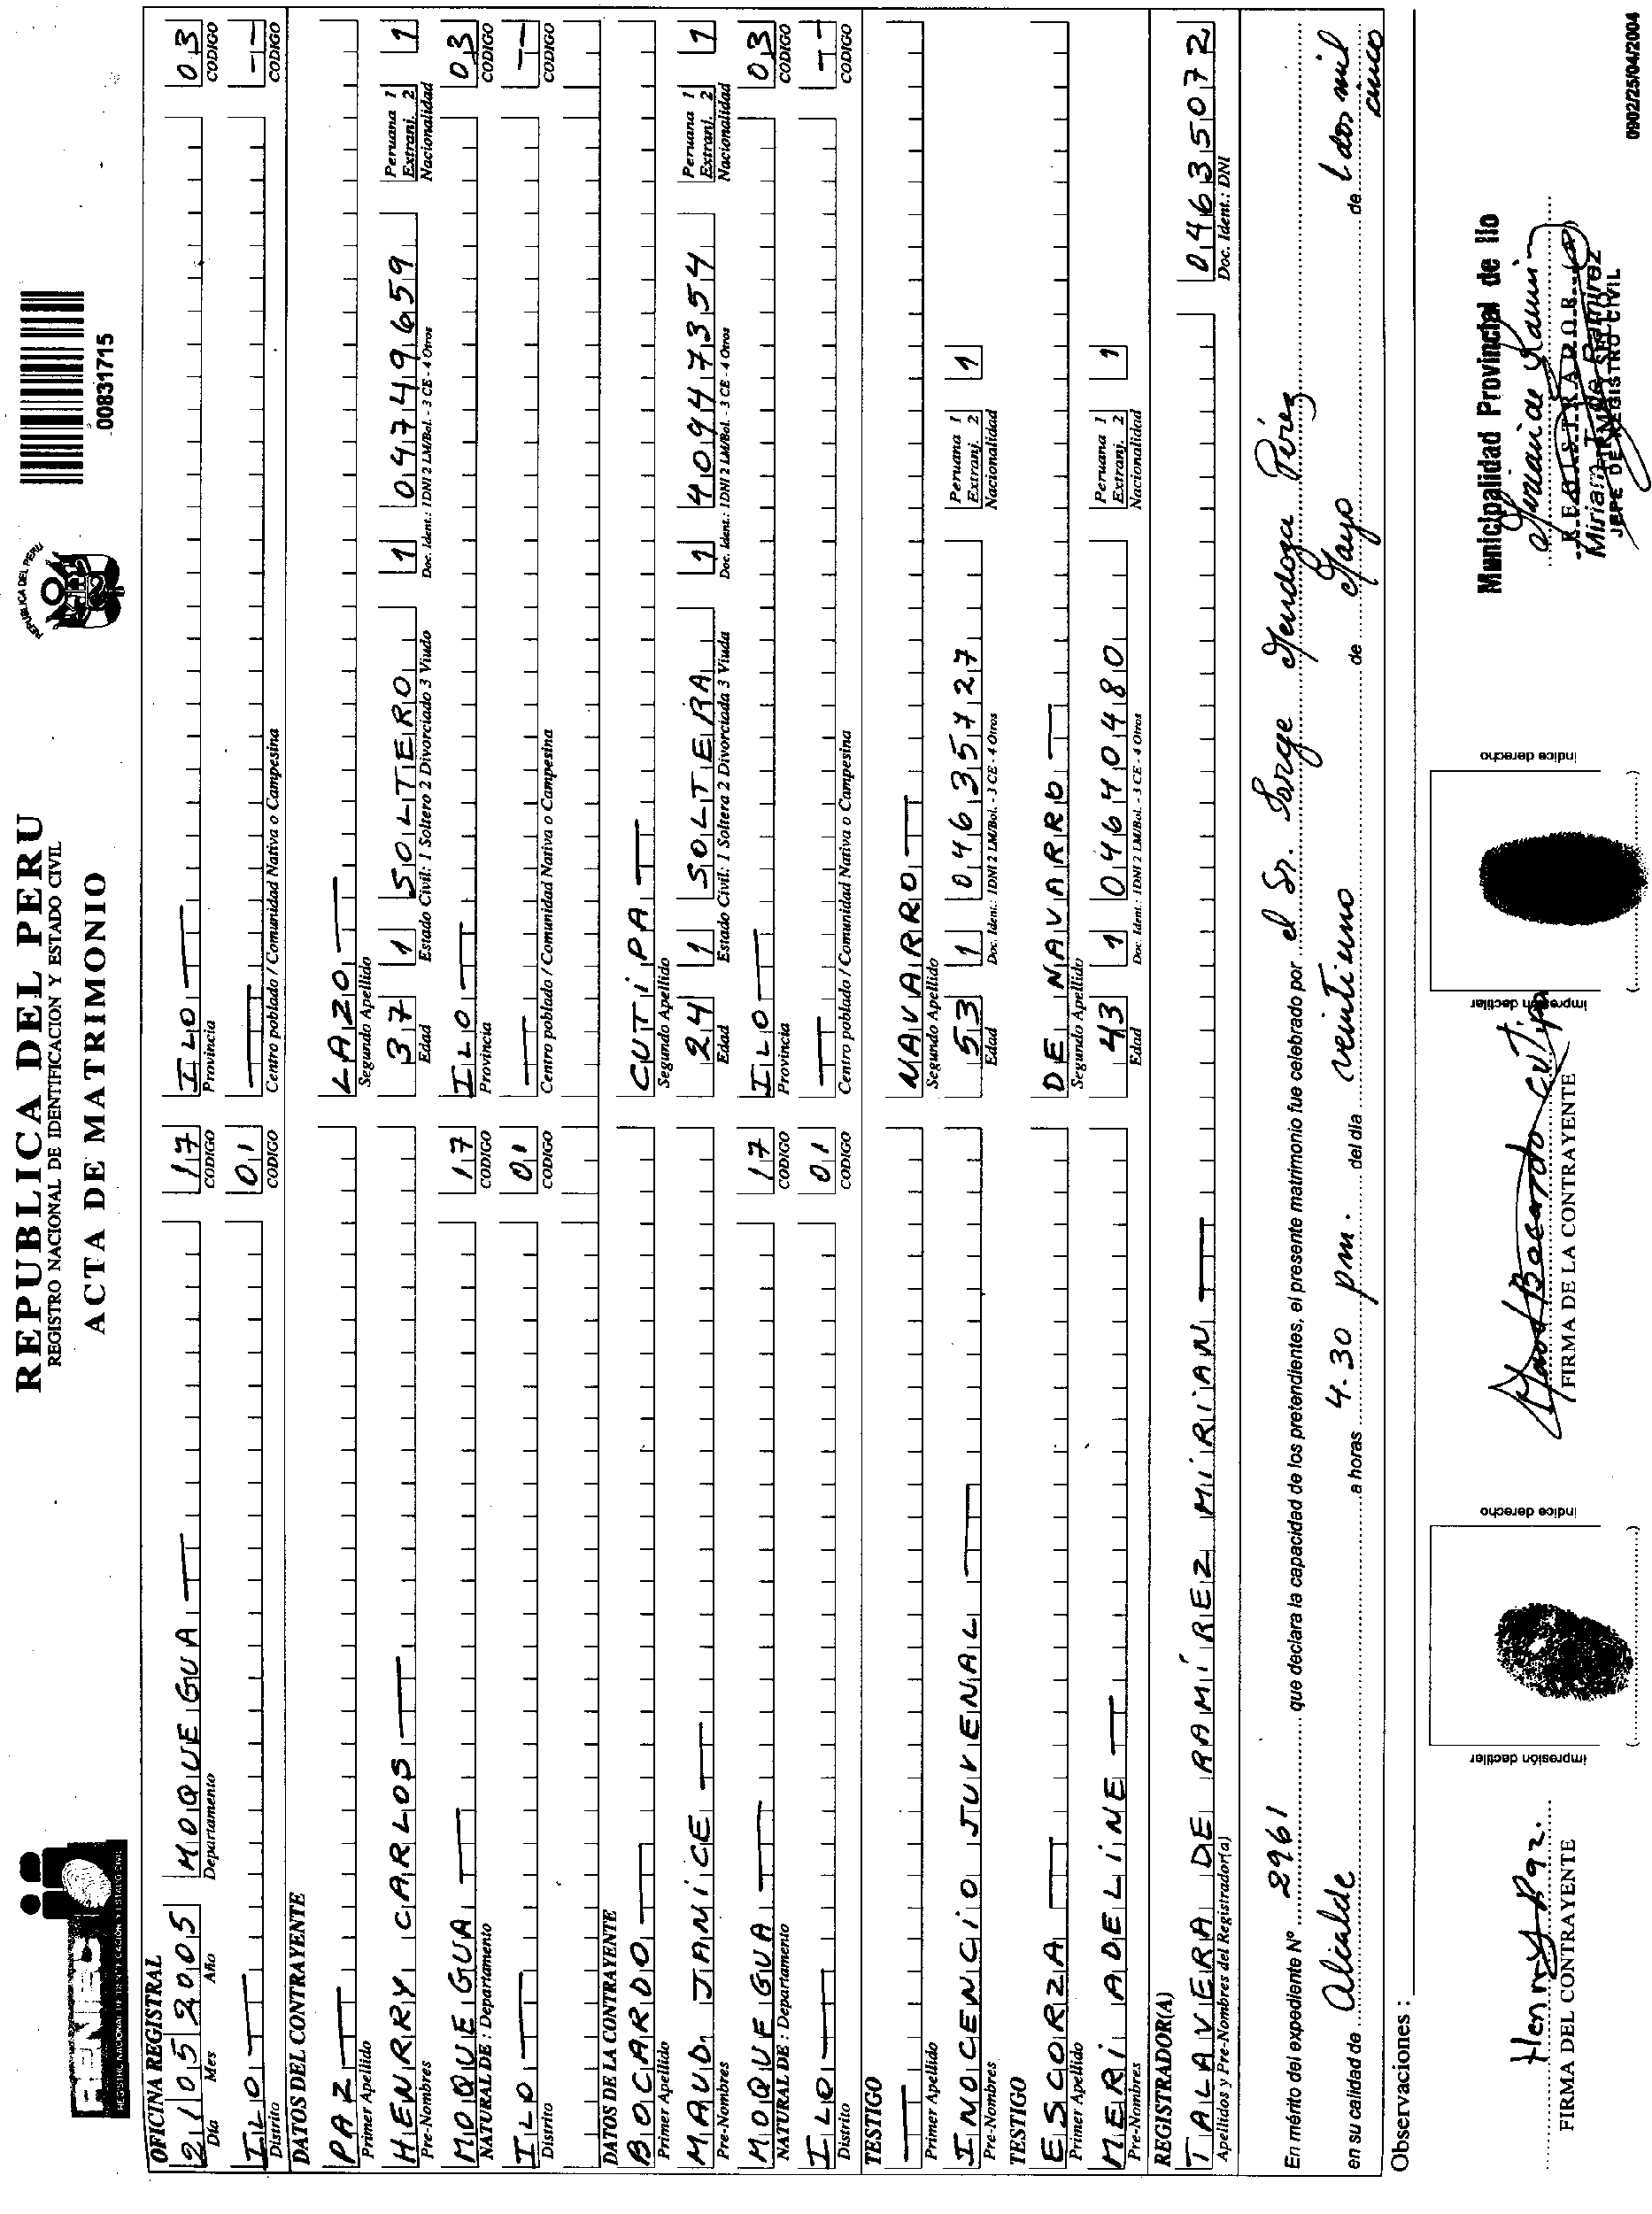 RENIEC
REGISTRO NACIONAL DE IDENTIFICACION Y ESTADO CIVIL
REPUBLICA DEL PERU
REGISTRO NACIONAL DE IDENTIFICACION Y ESTADO CIVIL
ACTA DE MATRIMONIO
REPUBLICA DEL PERU
00831715
OFICINA REGISTRAL
21 05 2005 MOQUEGUA 17 ILO 03
Día Mes Año Departamento CODIGO Provincia CODIGO
ILO 01 --
Distrito CODIGO Centro poblado / Comunidad Nativa o Campesina CODIGO
DATOS DEL CONTRAYENTE
PAZ LAZO
Primer Apellido Segundo Apellido
HENRRY CARLOS 37 1 SOLTERO 1 04749659 Peruana 1 Extranj. 2 1
Pre-Nombres Edad Estado Civil: 1 Soltero 2 Divorciado 3 Viudo Doc. Ident.: 1DNI 2 LM/Bol. - 3 CE - 4 Otros Nacionalidad
MOQUEGUA 17 ILO 03
NATURAL DE : Departamento CODIGO Provincia CODIGO
ILO 01 --
Distrito CODIGO Centro poblado / Comunidad Nativa o Campesina CODIGO
DATOS DE LA CONTRAYENTE
BOCARDO CUTIPA
Primer Apellido Segundo Apellido
MAUD JANICE 24 1 SOLTERA 1 40947354 Peruana 1 Extranj. 2 1
Pre-Nombres Edad Estado Civil: 1 Soltera 2 Divorciada 3 Viuda Doc. Ident.: 1DNI 2 LM/Bol. - 3 CE - 4 Otros Nacionalidad
MOQUEGUA 17 ILO 03
NATURAL DE : Departamento CODIGO Provincia CODIGO
ILO 01 --
Distrito CODIGO Centro poblado / Comunidad Nativa o Campesina CODIGO
TESTIGO
NAVARRO
Primer Apellido Segundo Apellido
INOCENCIO JUVENAL 53 1 04635727 Peruana 1 Extranj. 2 1
Pre-Nombres Edad Doc. Ident.: 1DNI 2 LM/Bol. - 3 CE - 4 Otros Nacionalidad
TESTIGO
ESCORZA DE NAVARRO
Primer Apellido Segundo Apellido
MERI ADELINE 43 1 04640480 Peruana 1 Extranj. 2 1
Pre-Nombres Edad Doc. Ident.: 1DNI 2 LM/Bol. - 3 CE - 4 Otros Nacionalidad
REGISTRADOR(A)
TALAVERA DE RAMIREZ MIRIAN 04635072
Apellidos y Pre-Nombres del Registrador(a) Doc. Ident.: DNI
En mérito del expediente Nº 2961 que declara la capacidad de los pretendientes, el presente matrimonio fue celebrado por el Sr. Jorge Mendoza Pérez
en su calidad de Alcalde a horas 4.30 pm. del día veintiuno de Mayo de dos mil cinco
Observaciones :
Henrry Paz.
FIRMA DEL CONTRAYENTE
impresión dactilar
indice derecho
Maud Bocardo Cutipa
FIRMA DE LA CONTRAYENTE
impresión dactilar
indice derecho
Municipalidad Provincial de Ilo
REGISTRADOR (a)
Miriam T. de Ramirez
FIRMA Y SELLO
JEFE DE REGISTRO CIVIL
0902/25/04/2004